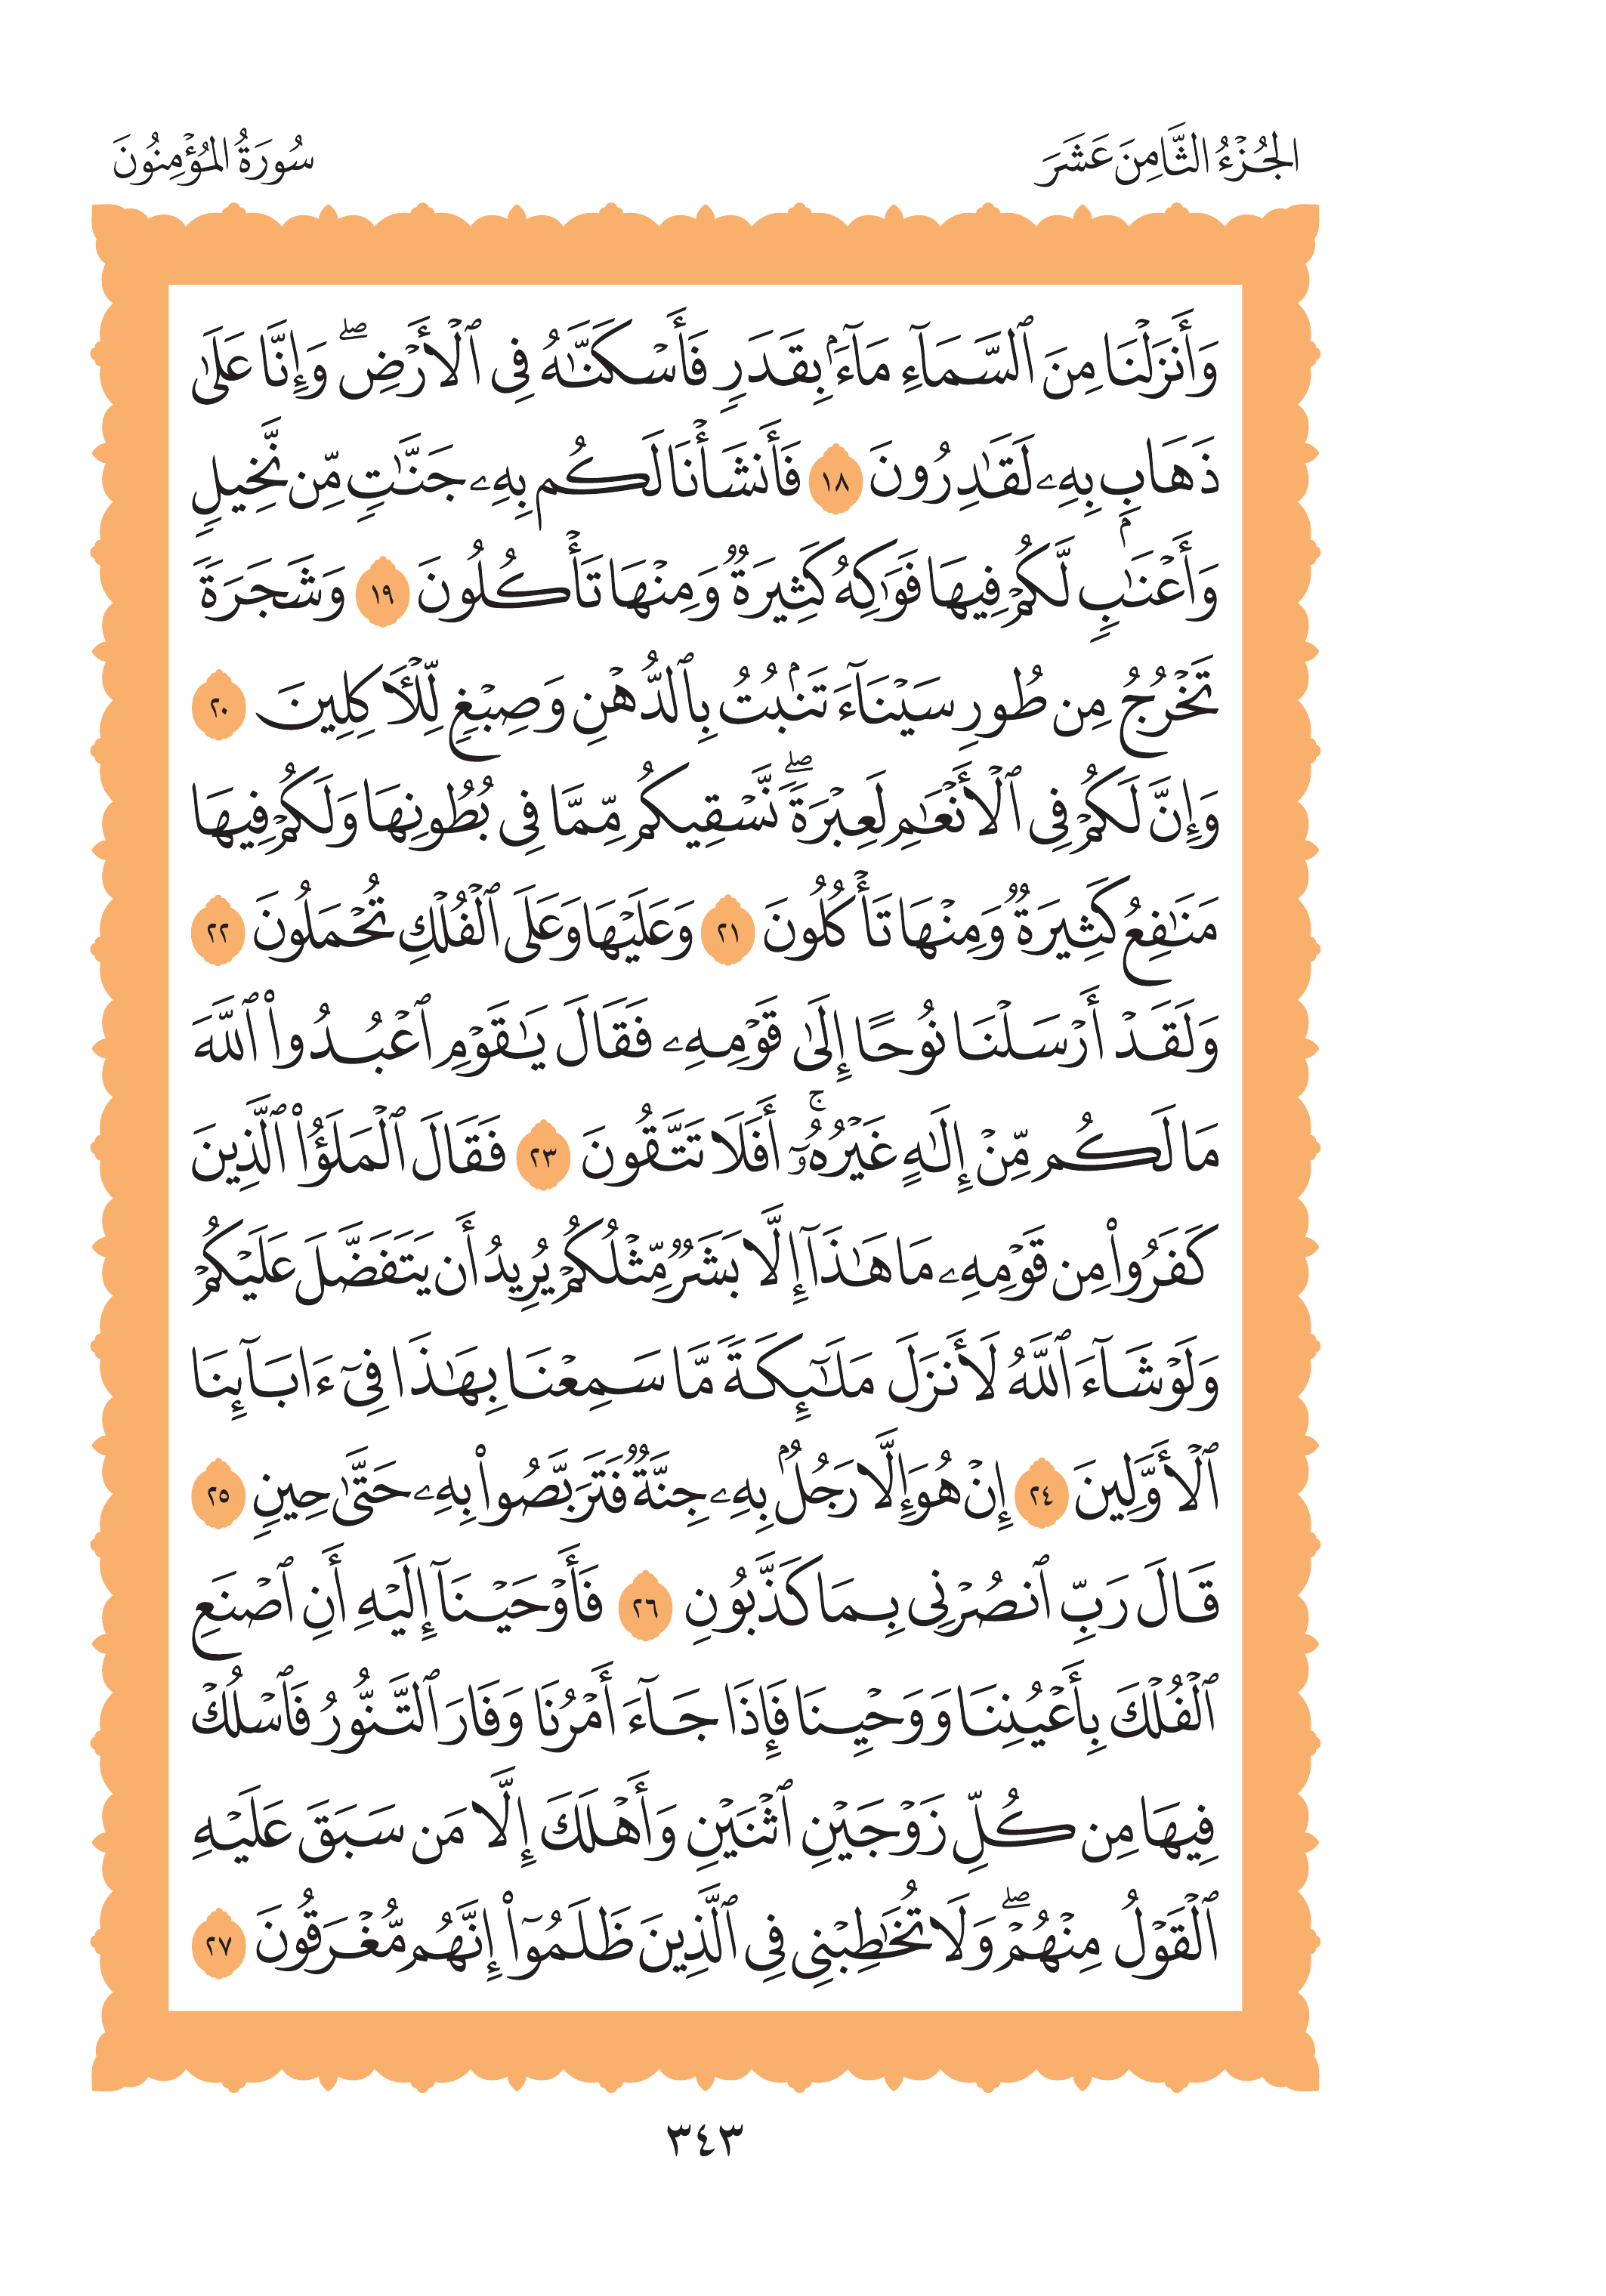 الجُزْءُ الثَّامِنَ عَشَرَ
سُورَةُ المُؤْمِنُونَ
وَأَنزَلْنَا مِنَ ٱلسَّمَآءِ مَآءَۢ بِقَدَرٍ فَأَسْكَنَّٰهُ فِى ٱلْأَرْضِۖ وَإِنَّا عَلَىٰ
ذَهَابٍۭ بِهِۦ لَقَٰدِرُونَ ١٨ فَأَنشَأْنَا لَكُم بِهِۦ جَنَّٰتٍ مِّن نَّخِيلٍ
وَأَعْنَٰبٍ لَّكُمْ فِيهَا فَوَٰكِهُ كَثِيرَةٌ وَمِنْهَا تَأْكُلُونَ ١٩ وَشَجَرَةً
تَخْرُجُ مِن طُورِ سَيْنَآءَ تَنۢبُتُ بِٱلدُّهْنِ وَصِبْغٍ لِّلْأٓكِلِينَ ٢٠
وَإِنَّ لَكُمْ فِى ٱلْأَنْعَٰمِ لَعِبْرَةًۖ نَّسْقِيكُم مِّمَّا فِى بُطُونِهَا وَلَكُمْ فِيهَا
مَنَٰفِعُ كَثِيرَةٌ وَمِنْهَا تَأْكُلُونَ ٢١ وَعَلَيْهَا وَعَلَى ٱلْفُلْكِ تُحْمَلُونَ ٢٢
وَلَقَدْ أَرْسَلْنَا نُوحًا إِلَىٰ قَوْمِهِۦ فَقَالَ يَٰقَوْمِ ٱعْبُدُواْ ٱللَّهَ
مَا لَكُم مِّنْ إِلَٰهٍ غَيْرُهُۥٓۚ أَفَلَا تَتَّقُونَ ٢٣ فَقَالَ ٱلْمَلَؤُاْ ٱلَّذِينَ
كَفَرُواْ مِن قَوْمِهِۦ مَا هَٰذَآ إِلَّا بَشَرٌ مِّثْلُكُمْ يُرِيدُ أَن يَتَفَضَّلَ عَلَيْكُمْ
وَلَوْ شَآءَ ٱللَّهُ لَأَنزَلَ مَلَٰٓئِكَةً مَّا سَمِعْنَا بِهَٰذَا فِىٓ ءَابَآئِنَا
ٱلْأَوَّلِينَ ٢٤ إِنْ هُوَ إِلَّا رَجُلٌۢ بِهِۦ جِنَّةٌ فَتَرَبَّصُواْ بِهِۦ حَتَّىٰ حِينٍ ٢٥
قَالَ رَبِّ ٱنصُرْنِى بِمَا كَذَّبُونِ ٢٦ فَأَوْحَيْنَآ إِلَيْهِ أَنِ ٱصْنَعِ
ٱلْفُلْكَ بِأَعْيُنِنَا وَوَحْيِنَا فَإِذَا جَآءَ أَمْرُنَا وَفَارَ ٱلتَّنُّورُ فَٱسْلُكْ
فِيهَا مِن كُلِّ زَوْجَيْنِ ٱثْنَيْنِ وَأَهْلَكَ إِلَّا مَن سَبَقَ عَلَيْهِ
ٱلْقَوْلُ مِنْهُمْۖ وَلَا تُخَٰطِبْنِى فِى ٱلَّذِينَ ظَلَمُوٓاْ إِنَّهُم مُّغْرَقُونَ ٢٧
٣٤٣